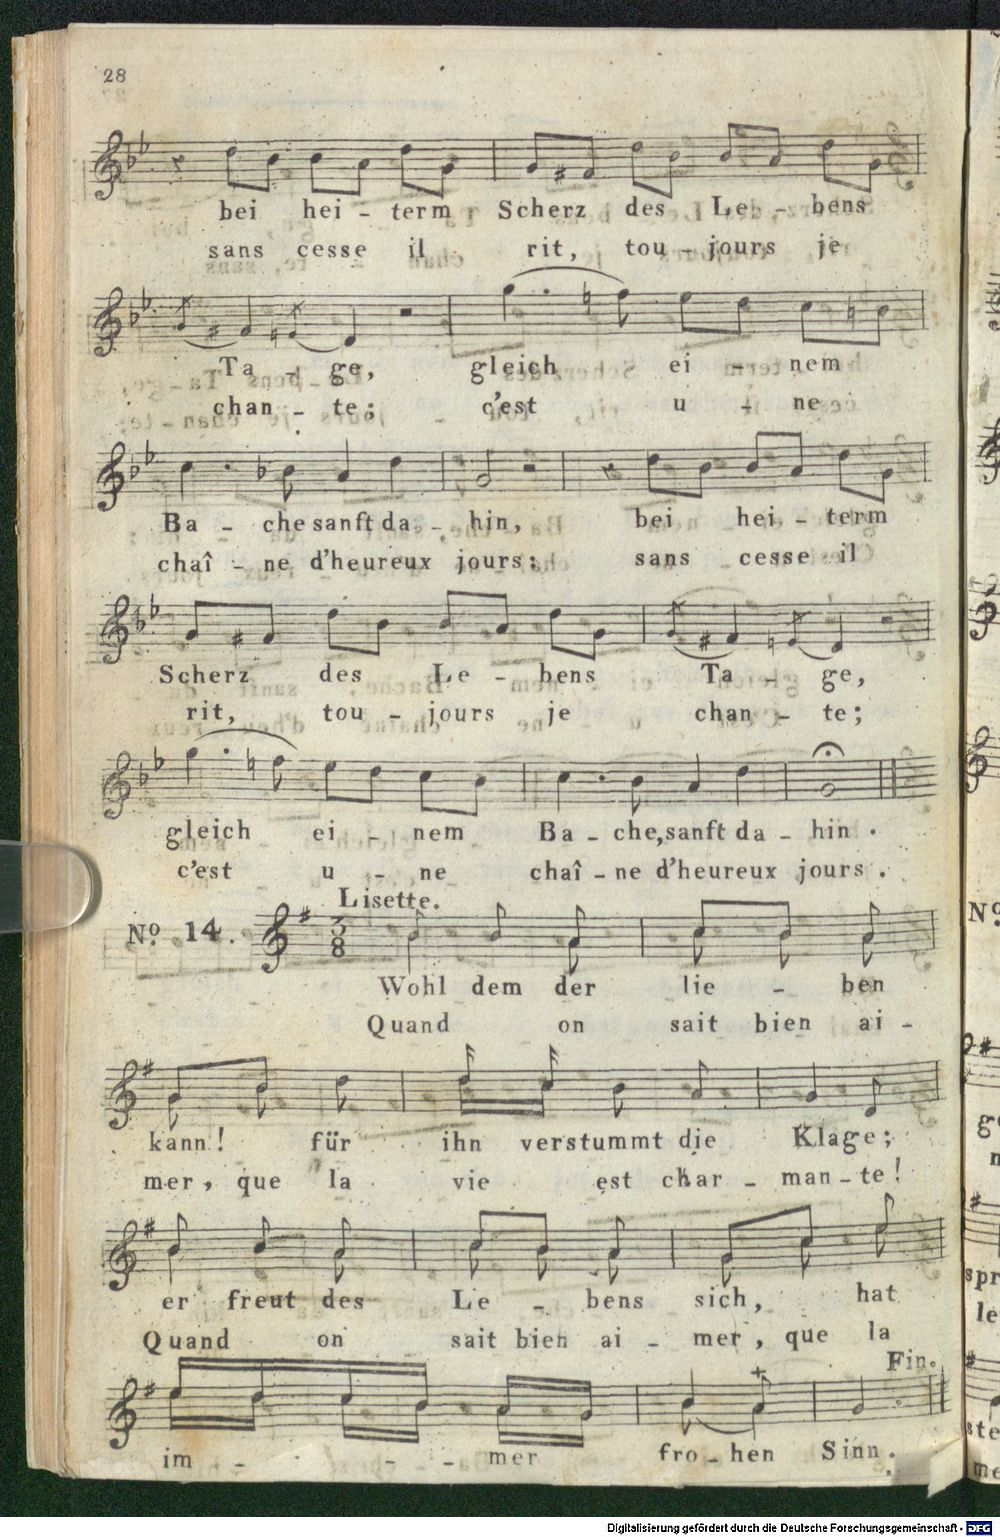 28
bei hei - term Scherz des Le - bens
sans cesse il rit, tou - jours je
Ta - ge, gleich ei - nem
chan - te; c'est u - ne
Ba - che sanft da - hin, bei hei - term
chaî - ne d'heureux jours; sans cesse il
Scherz des Le - bens Ta - ge,
rit, tou - jours je chan - te;
gleich ei - nem Ba - che, sanft da - hin.
c'est u - ne chaî - ne d'heureux jours.
Lisette.
No. 14.
3/8
Wohl dem der lie - ben
Quand on sait bien ai -
kann! für ihn verstummt die Klage;
mer, que la vie est char - man - te!
er freut des Le - bens sich, hat
Quand on sait bien ai - mer, que la
Fin.
im - - - mer fro - hen Sinn.
Digitalisierung gefördert durch die Deutsche Forschungsgemeinschaft - DFG